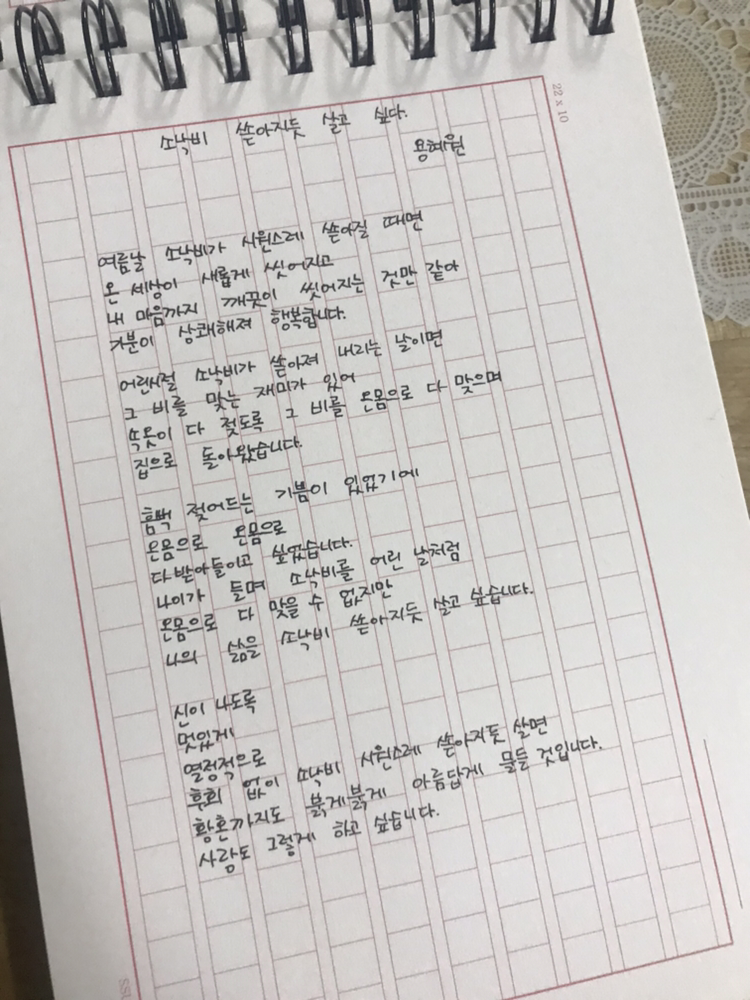 소낙비 쏟아지듯 살고 싶다.
용혜원
여름날 소낙비가 시원스레 쏟아질 때면
온 세상이 새롭게 씻어지고
내 마음까지 깨끗이 씻어지는 것만 같아
기분이 상쾌해져 행복합니다.
어린시절 소낙비가 쏟아져 내리는 날이면
그 비를 맞는 재미가 있어
속옷이 다 젖도록 그 비를 온몸으로 다 맞으며
집으로 돌아왔습니다.
흠뻑 젖어드는 기쁨이 있었기에
온몸으로 온몸으로
다 받아들이고 싶었습니다.
나이가 들며 소낙비를 어린 날처럼
온몸으로 다 맞을 수 없지만
나의 삶을 소낙비 쏟아지듯 살고 싶습니다.
신이 나도록
멋있게
열정적으로
후회 없이 소낙비 시원스레 쏟아지듯 살면
황혼까지도 붉게붉게 아름답게 물들 것입니다.
사랑도 그렇게 하고 싶습니다.
22 x 10